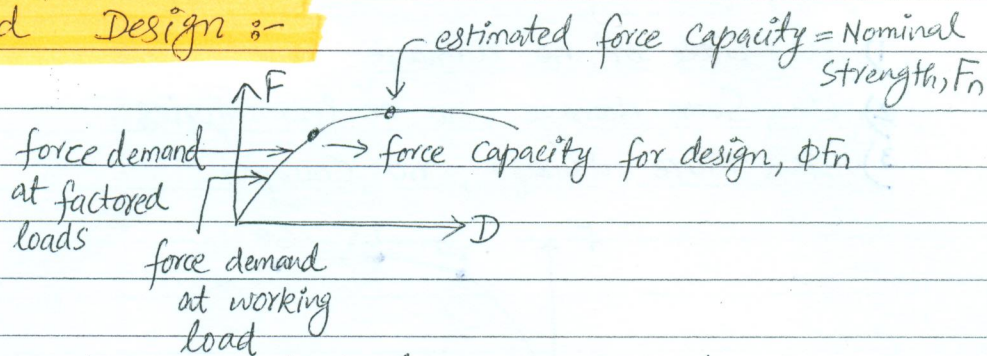 d Design :-
estimated force capacity = Nominal
Strength, Fn
F
force demand
at factored
loads
→ force capacity for design, ΦFn
D
force demand
at working
load